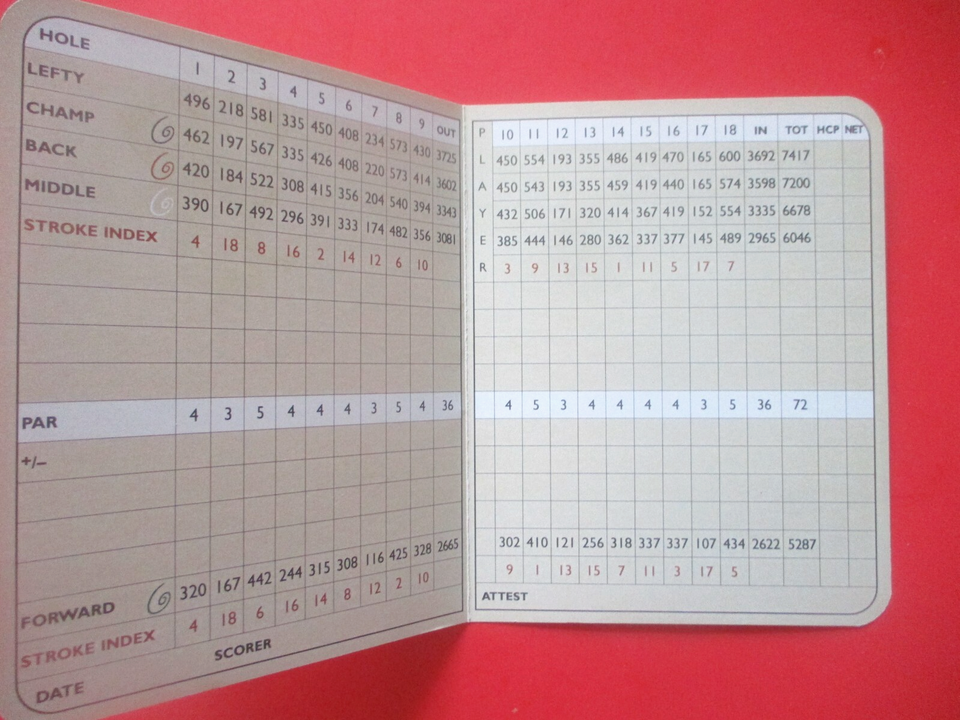 HOLE 1 2 3 4 5 6 7 8 9 OUT
LEFTY 496 218 581 335 450 408 234 573 430 3725
CHAMP 462 197 567 335 426 408 220 573 414 3602
BACK 420 184 522 308 415 356 204 540 394 3343
MIDDLE 390 167 492 296 391 333 174 482 356 3081
STROKE INDEX 4 18 8 16 2 14 12 6 10
PAR 4 3 5 4 4 4 3 5 4 36
+/–
FORWARD 320 167 442 244 315 308 116 425 328 2665
STROKE INDEX 4 18 6 16 14 8 12 2 10
DATE SCORER
P 10 11 12 13 14 15 16 17 18 IN TOT HCP NET
L 450 554 193 355 486 419 470 165 600 3692 7417
A 450 543 193 355 459 419 440 165 574 3598 7200
Y 432 506 171 320 414 367 419 152 554 3335 6678
E 385 444 146 280 362 337 377 145 489 2965 6046
R 3 9 13 15 1 11 5 17 7
4 5 3 4 4 4 4 3 5 36 72
302 410 121 256 318 337 337 107 434 2622 5287
9 1 13 15 7 11 3 17 5
ATTEST